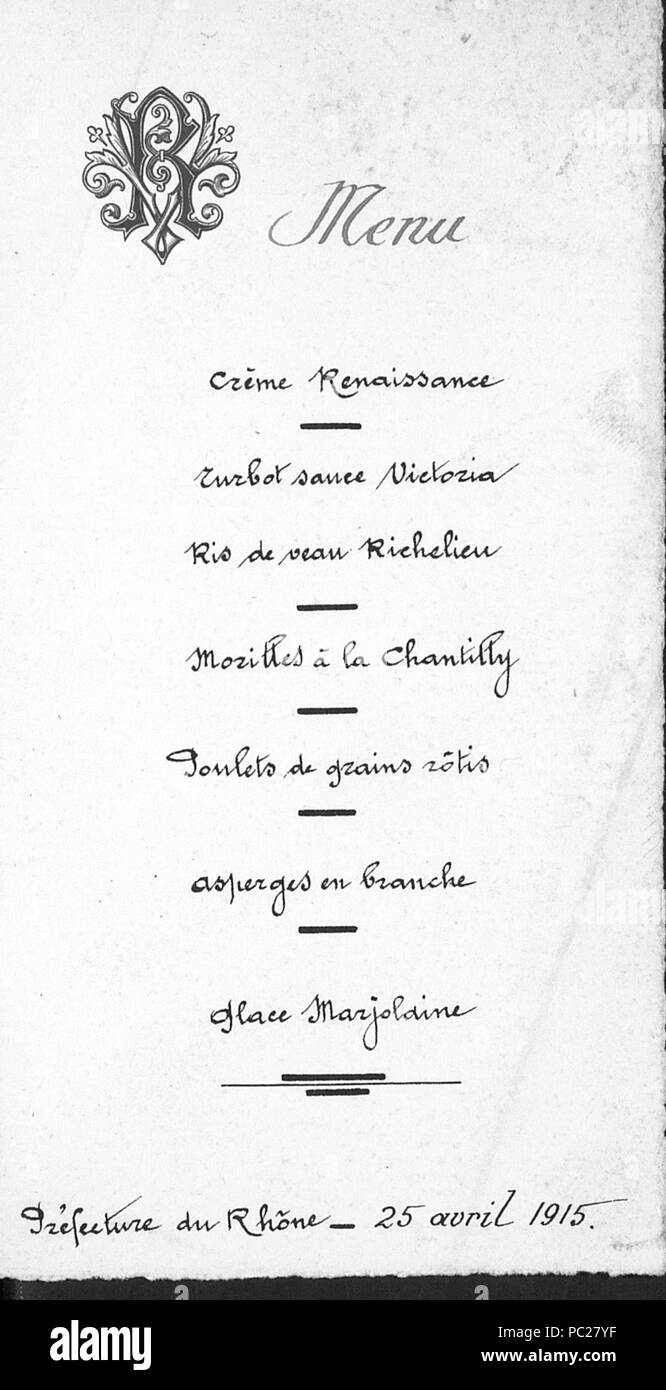 R
Menu
Crême Renaissance
Turbot sauce Victoria
Ris de veau Richelieu
Morilles à la Chantilly
Poulets de grains rôtis
asperges en branche
Glace Marjolaine
Préfecture du Rhône – 25 avril 1915.
alamy
alamy
a
a
alamy
Image ID: PC27YF
www.alamy.com